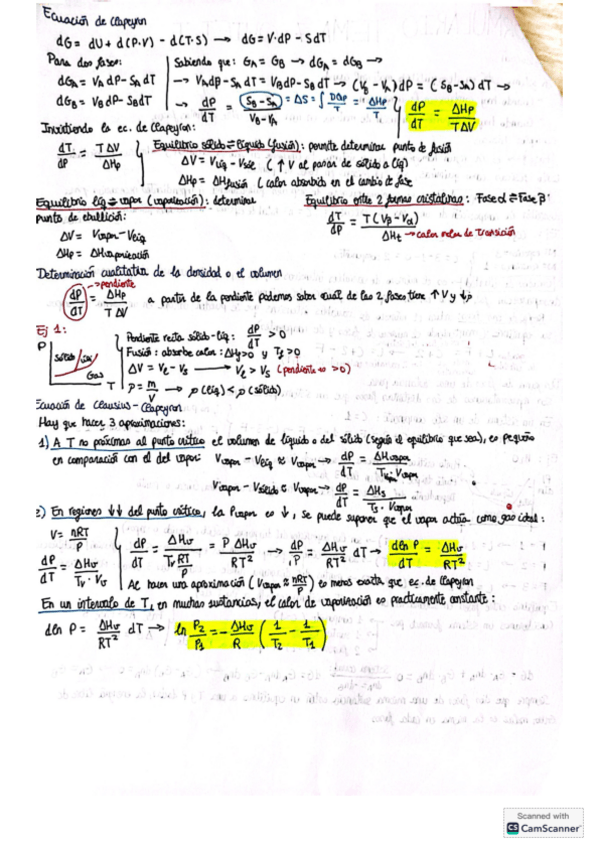 Ecuación de Clapeyron
dG = dU + d(P·V) - d(T·S) → dG = V·dP - SdT
Para dos fases:
dGA = VA dP - SA dT
dGB = VB dP - SB dT
Sabiendo que: GA = GB → dGA = dGB →
→ VA dP - SA dT = VB dP - SB dT → (VB - VA) dP = (SB - SA) dT →
→ dP/dT = (SB - SA)/(VB - VA)
dP/dT = ΔHp/TΔV
Invirtiendo la ec. de Clapeyron:
dT/dP = TΔV/ΔHp
Equilibrio sólido ⇌ líquido (fusión): permite determinar punto de fusión
ΔV = Vliq - Vsol (↑V al pasar de sólido a líq)
ΔHp = ΔHfusión (calor absorbido en el cambio de fase
Equilibrio líq ⇌ vapor (vaporización): determinar
punto de ebullición:
ΔV = Vvapor - Vliq
ΔHp = ΔHvaporización
Equilibrio entre 2 formas cristalinas: Fase α ⇌ Fase β
dT/dP = T(Vβ - Vα)/ΔHt → calor molar de transición
Determinación cualitativa de la densidad o el volumen
→ pendiente
dP/dT = ΔHp/TΔV a partir de la pendiente podemos saber cual de las 2 fases tiene ↑V y ↓ρ
Ej 1:
P
Sólido
líq
Gas
T
Pendiente recta sólido-líq: dP/dT > 0
Fusión: absorbe calor: ΔHf > 0 y Tf > 0
ΔV = Vl - Vs → Vl > Vs (pendiente es > 0)
ρ = m/V → ρ(líq) < ρ(sólido)
Ecuación de Clausius-Clapeyron
Hay que hacer 3 aproximaciones:
1) A T no próximas al punto crítico el volumen de líquido o del sólido (según el equilibrio que sea), es pequeño
en comparación con el del vapor: Vvapor - Vliq ≈ Vvapor → dP/dT = ΔHvapor/Tv·Vvapor
Vvapor - Vsólido ≈ Vvapor → dP/dT = ΔHs/Ts·Vvapor
2) En regiones ↓↓ del punto crítico, la Pvapor es ↓, se puede suponer que el vapor actúa como gas ideal:
V = nRT/P
dP/dT = ΔHv/Tv·Vv
dP/dT = ΔHv/(Tv RT/P) = P ΔHv/RT² → dP/P = ΔHv/RT² dT → dln P/dT = ΔHv/RT²
Al hacer una aproximación (Vvapor ≈ nRT/P) es menos exacta que ec. de Clapeyron
En un intervalo de T, en muchas sustancias, el calor de vaporización es practicamente constante:
dln P = ΔHv/RT² dT → ln P2/P1 = - ΔHv/R (1/T2 - 1/T1)
Scanned with
CS CamScanner